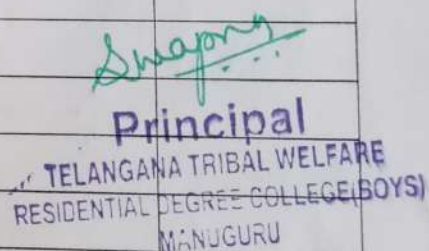 Swapna
Principal
TELANGANA TRIBAL WELFARE
RESIDENTIAL DEGREE COLLEGE(BOYS)
MANUGURU